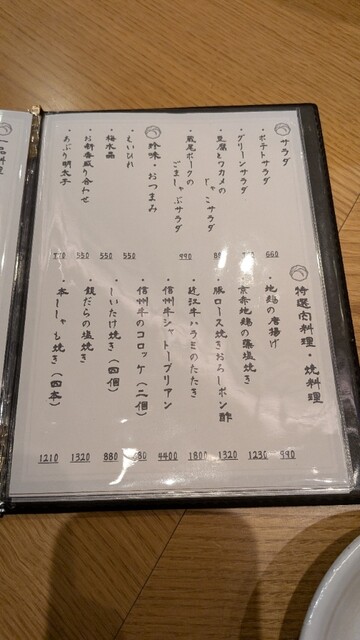 サラダ
・ポテトサラダ
660
・グリーンサラダ
・豆腐とワカメの
じゃこサラダ
・蔵尾ポークの
ごましゃぶサラダ
990
珍味・おつまみ
・えいひれ
550
・梅水晶
550
・お新香盛り合わせ
550
・あぶり明太子
770
特選肉料理・焼料理
・地鶏の唐揚げ
990
・京赤地鶏の藻塩焼き
1230
・豚ロース焼きおろしポン酢
1320
・近江牛ハラミのたたき
1800
・信州牛シャトーブリアン
4400
・信州牛のコロッケ(二個)
680
・しいたけ焼き(四個)
880
・銀だらの塩焼き
1320
・本ししゃも焼き(四本)
1210
一品料理